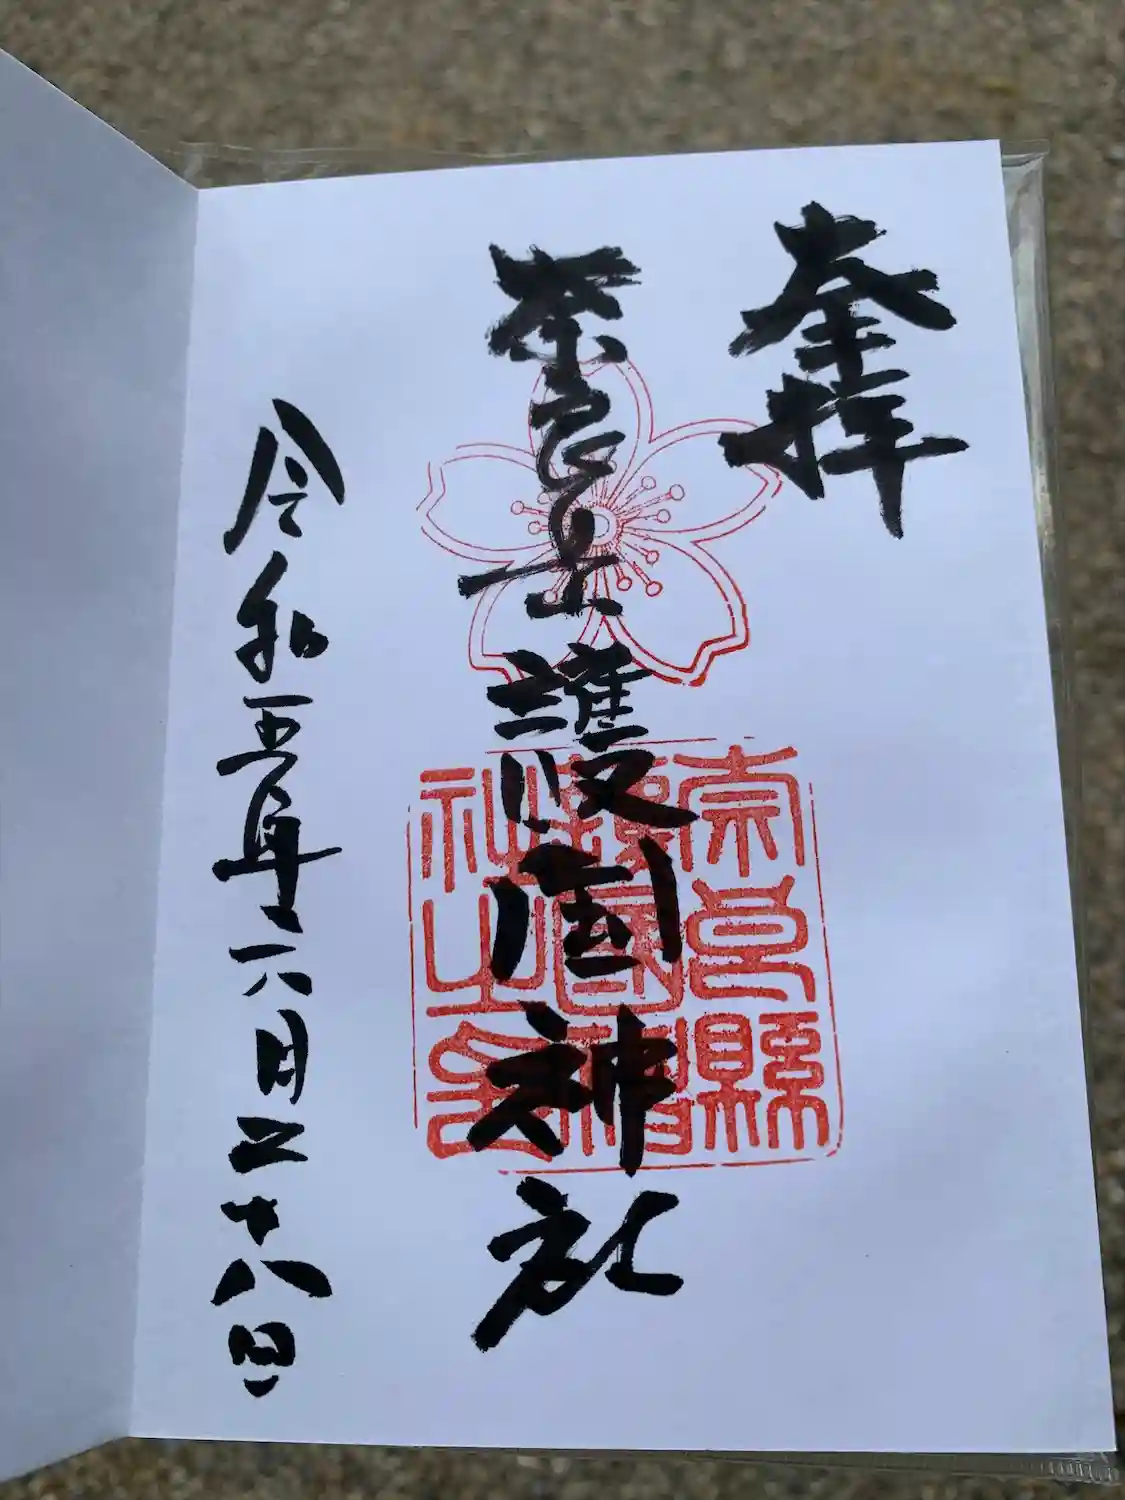 奉拝
奈良県護国神社
令和五年六月二十八日
奈良縣
護國神
社之印